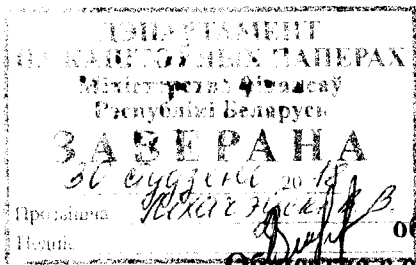 ДЭПАРТАМЕНТ
ПА КАШТОЎНЫХ ПАПЕРАХ
Міністэрства фінансаў
Рэспублікі Беларусь
ЗАВЕРАНА
30 студзеня 20
Прозвішча
Подпіс